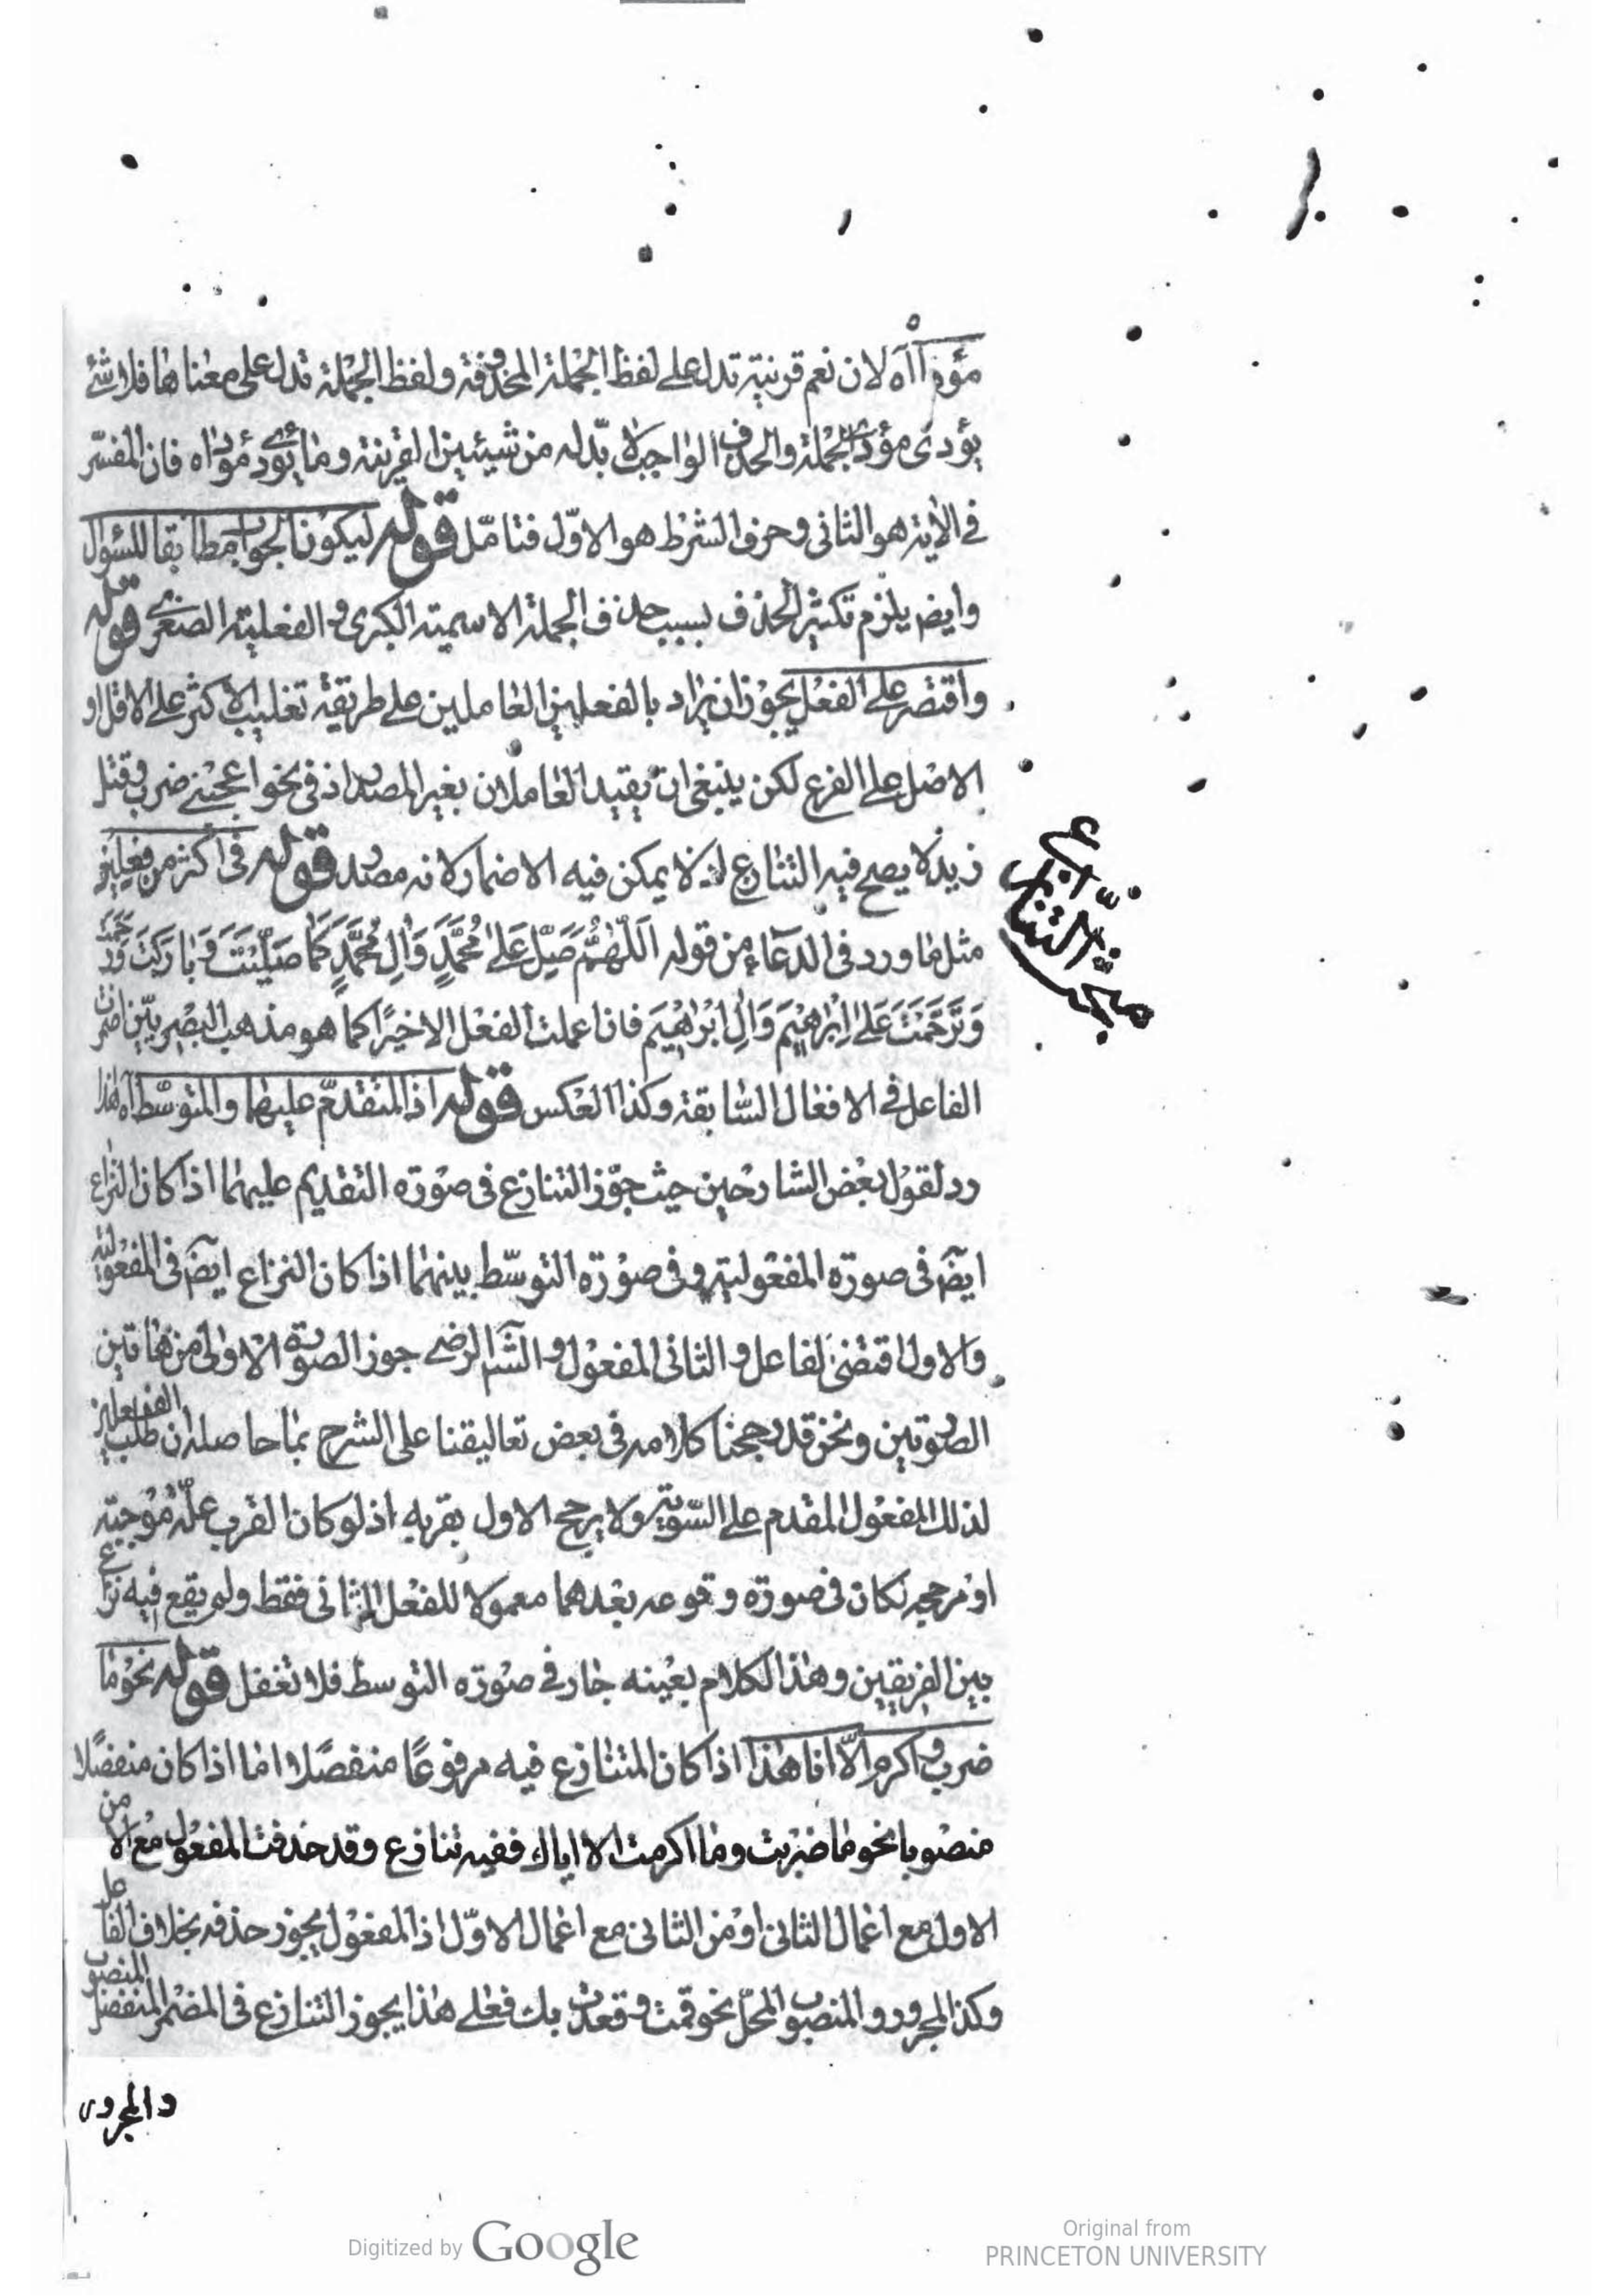 مؤداه آه لان نعم قرينة تدل على لفظ الجملة المحذوفة ولفظ الجملة تدل على معناها فلا شئ
يؤدى مؤدى الجملة والحذف الواجب لا بدّ له من شيئين القرينة وما يؤدى مؤداه فان المفسّر
فى الاية هو الثانى وحرف الشرط هو الاوّل فتامّل قوله ليكون الجواب مطابقا للسؤال
وايضم يلزم تكثير الحذف بسبب حذف الجملة الاسمية الكبرى والفعلية الصغرى قوله
واقتصر على الفعل يجوز ان يراد بالفعلين العاملين على طريقة تغليب الاكثر على الاقل او
الاصل على الفرع لكن ينبغى ان يقيد العاملان بغير المصدر اذ فى نحو اعجبنى ضرب وقتل
زيد لا يصح فيه التنازع اذ لا يمكن فيه الاضمار لانه مصدر قوله فى اكثر من فعلين
مبحث التنازع
مثل ما ورد فى الدعاء من قوله اَللّهُمَّ صَلِّ عَلى مُحَمَّدٍ وَالِ مُحَمَّدٍ كَمَا صَلَّيْتَ وَبَارَكْتَ وَرَحِمْتَ
وَتَرَحَّمْتَ عَلى اِبْرهِيْمَ وَالِ اِبْراهِيْمَ فان اعملت الفعل الاخير كما هو مذهب البصريّين اضمرت
الفاعل فى الافعال السّابقة وكذا العكس قوله اذ المتقدم عليهما والمتوسّط آه هذا
رد لقول بعض الشارحين حيث جوّز التنازع فى صورة التقديم عليهما اذا كان النزاع
ايضم فى صورة المفعولية وفى صورة التوسّط بينهما اذا كان النزاع ايضم فى المفعولية
والاول اقتضى الفاعل والثانى المفعول والشم الرضى جوز الصورة الاولى من هاتين
الصورتين ونحن قد رجحنا كلامه فى بعض تعاليقنا على الشرح بما حاصله ان طلب الفعلين
لذلك المفعول المقدم على السّوية ولا يرجح الاول بقربه اذ لو كان القرب علّة مُوجبة
او مرجحة لكان فى صورة وقوعه بعدهما معمولا للفعل الثانى فقط ولم يقع فيه نزاع
بين الفريقين وهذا الكلام بعينه جار فى صورة التوسط فلا تغفل قوله نحو ما
ضرب واكرم الّا انا هذا اذا كان المتنازع فيه مرفوعًا منفصلا اما اذا كان منفصلا
منصوبا نحو ما ضربت وما اكرمت الا اياك ففيه تنازع وقد حذفت المفعول مع الا من
الاول مع اعمال الثانى او من الثانى مع اعمال الاوّل اذ المفعول يجوز حذفه بخلاف الفاعل
وكذا المجرور والمنصوب المحلّ نحو قمت وقعدت بك فعلى هذا يجوز التنازع فى المضمر المنفصل المنصوب
والمجرور
Digitized by Google
Original from
PRINCETON UNIVERSITY